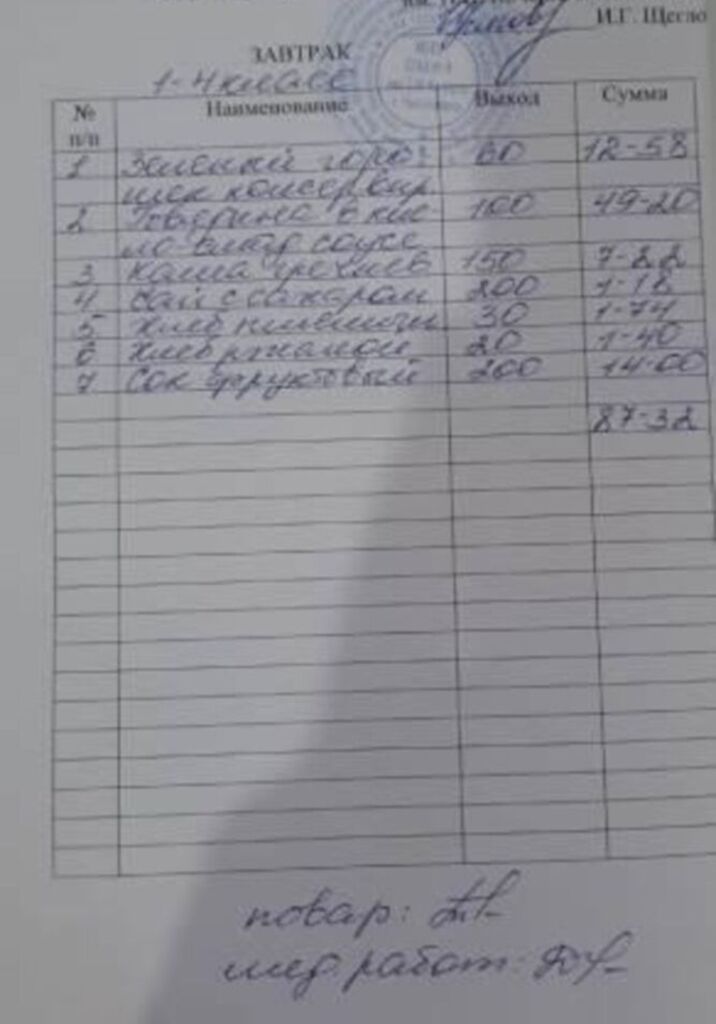 И.Г. Щегло
ЗАВТРАК
1-4 класс
№ п/п Наименование Выход Сумма
1 Зеленый горо- 60 12-58
шек консервир.
2 Говядина в кис- 100 49-20
ло-слад соусе
3 Каша гречнев 150 7-22
4 Чай с сахаром 200 1-18
5 Хлеб пшеничн 30 1-74
6 Хлеб ржаной 20 1-40
7 Сок фруктовый 200 14-00
87-32
повар:
мед. работ.